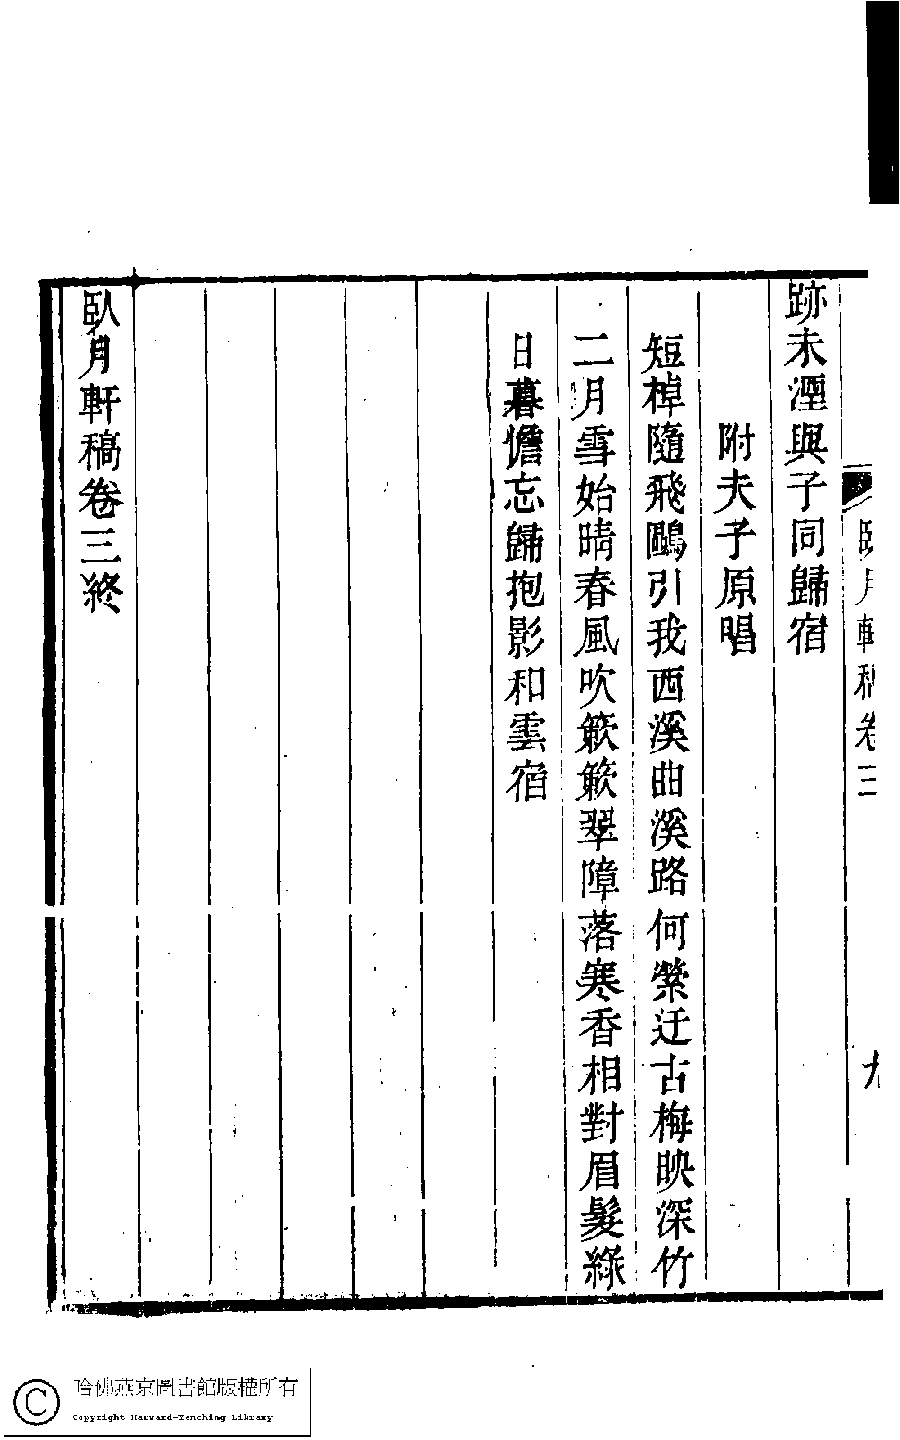 臥月軒稿卷三
九
跡未湮與子同歸宿
附夫子原唱
短棹隨飛鷗引我西溪曲溪路何縈迂古梅映深竹
二月雪始晴春風吹簌簌翠障落寒香相對眉髮綠
日暮憺忘歸抱影和雲宿
臥月軒稿卷三終
哈佛燕京圖書館版權所有
Copyright Harvard-Yenching Library